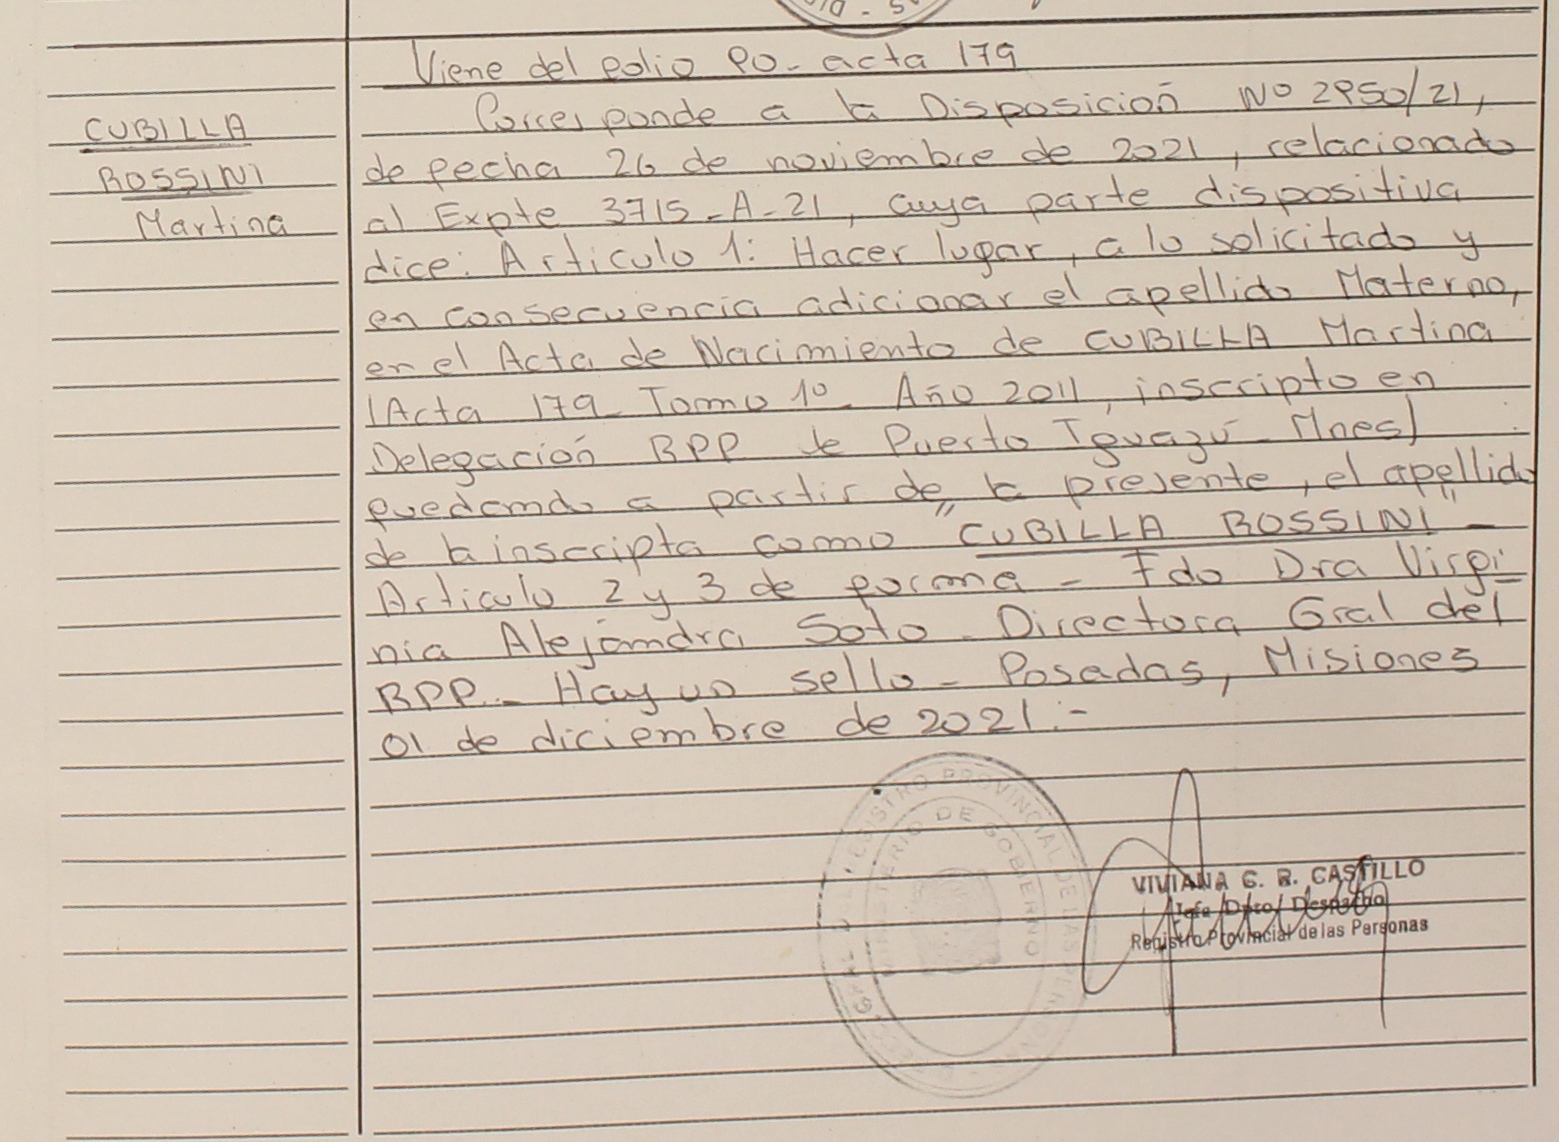 AS - DIR
Viene del folio 90- acta 179
CUBILLA
ROSSINI
Martina
Corresponde a la Disposición Nº 2950/21,
de fecha 26 de noviembre de 2021, relacionado
al Expte 3715-A-21, cuya parte dispositiva
dice: Articulo 1: Hacer lugar, a lo solicitado y
en consecuencia adicionar el apellido Materno,
en el Acta de Nacimiento de CUBILLA Martina
(Acta 179- Tomo 1º- Año 2011, inscripto en
Delegación RPP de Puerto Iguazú- Mnes)
quedando a partir de la presente, el apellido
de la inscripta como "CUBILLA ROSSINI"-
Articulo 2 y 3 de forma - Fdo Dra Virgi
nia Alejandra Soto - Directora Gral del
RPP.- Hay un sello - Posadas, Misiones
01 de diciembre de 2021.-
REGISTRO PROVINCIAL DE LAS PERSONAS
MINISTERIO DE GOBIERNO
VIVIANA G. R. CASTILLO
Jefe Dpto. Despacho
Registro Provincial de las Personas